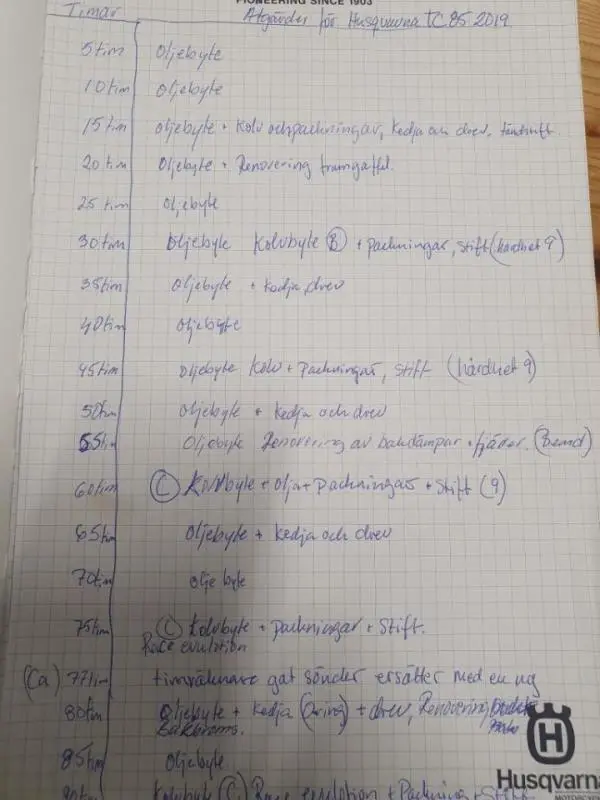 PIONEERING SINCE 1903
Timar Åtgärder för Husqvarna TC 85 2019
5 tim oljebyte
10 tim oljebyte
15 tim oljebyte + Kolv och packningar, kedja och drev, tändstift.
20 tim Oljebyte + Renovering framgaffel.
25 tim oljebyte
30 tim oljebyte Kolvbyte (B) + packningar, stift (hårdhet 9)
35 tim oljebyte + kedja, drev
40 tim oljebyte
45 tim oljebyte Kolv + Packningar, stift (hårdhet 9)
50 tim oljebyte + kedja och drev
55 tim Oljebyte Renovering av bakdämpar + fjäder.
60 tim (C) Kolvbyte + olja + packningar + stift (9)
65 tim oljebyte + kedja och drev
70 tim olje byte
75 tim (C) Kolvbyte + packningar + Stift.
Race evolution
(Ca) 77 tim timräknare gat sönder ersätter med en ny
80 tim Oljebyte + kedja (oring) + drev, Renovering
Bakbroms.
85 tim Oljebyte.
90 tim Kolvbyte (C) Race evolution + Packning + Stift
H
Husqvarna
MOTORCYCLES